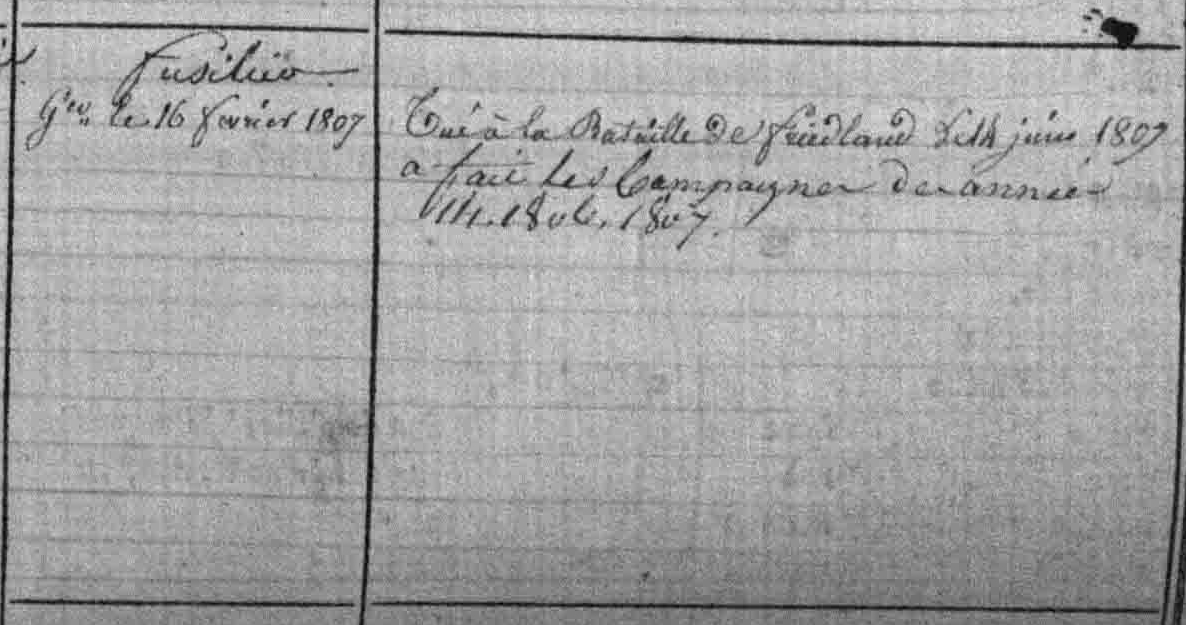 fusilier
Ger. le 16 fevrier 1807
Tué à la Bataille de friedland le 14 juin 1807
a fait les Campagnes des année
14. 1806. 1807.